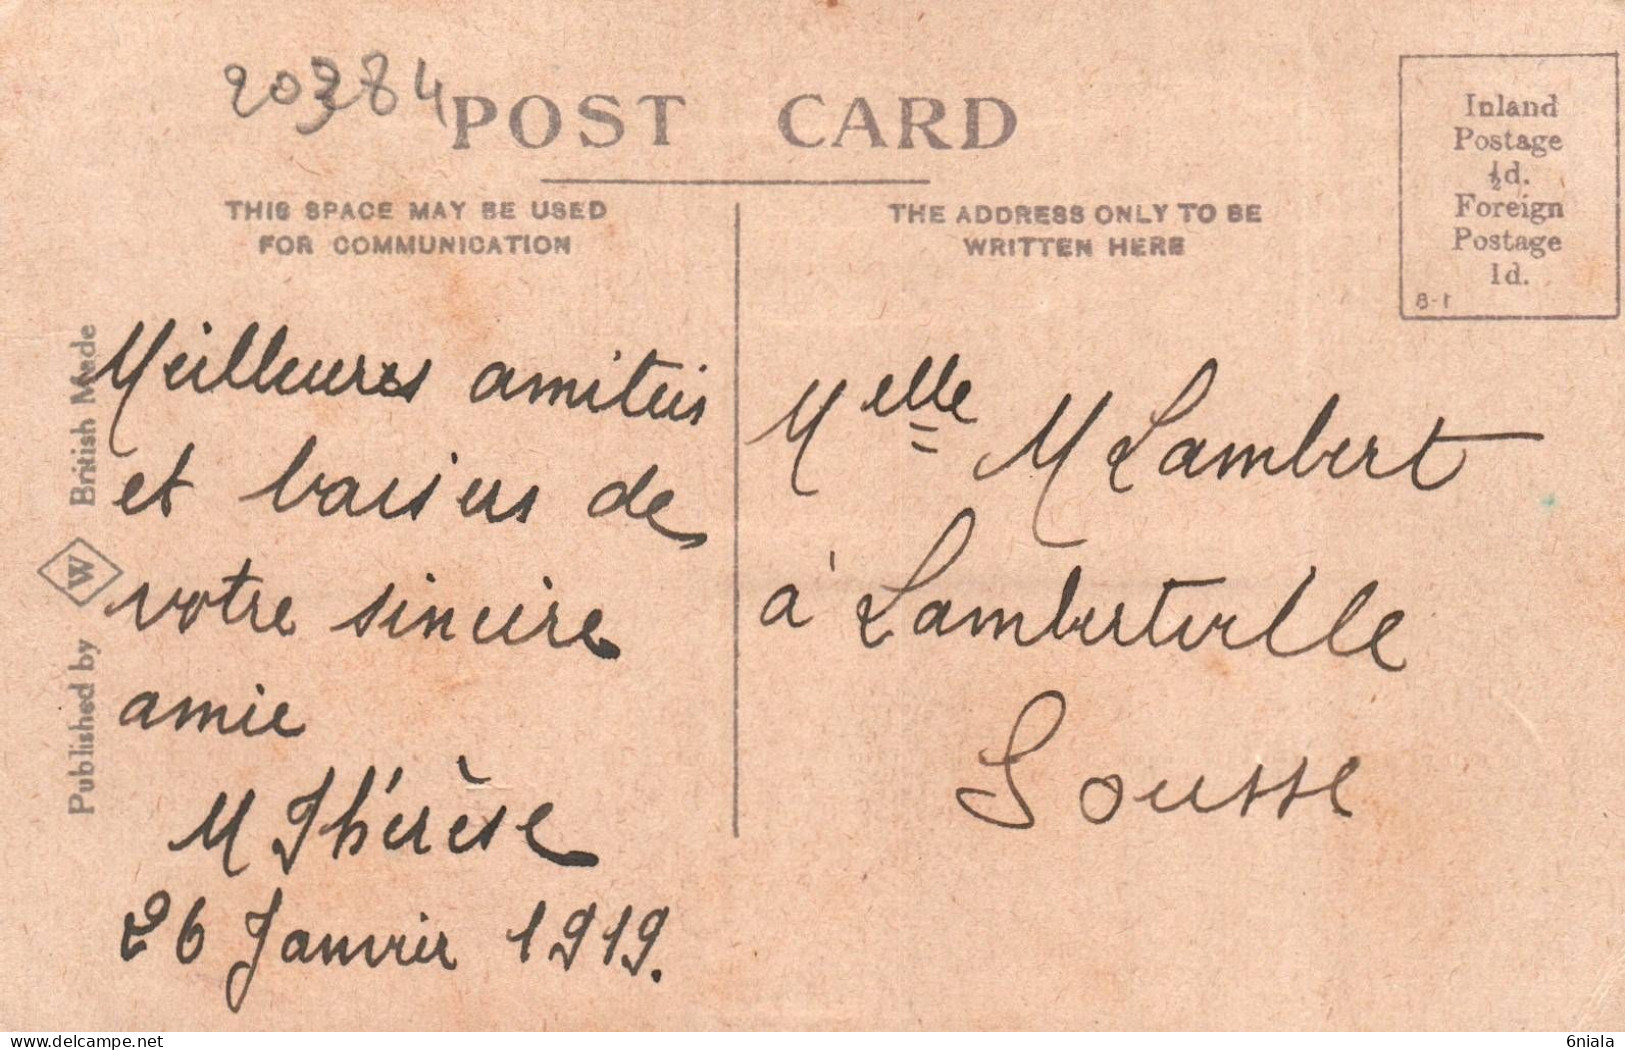 20384
POST CARD
THIS SPACE MAY BE USED
FOR COMMUNICATION
THE ADDRESS ONLY TO BE
WRITTEN HERE
Inland
Postage
½d.
Foreign
Postage
1d.
8-1
Published by W British Made
Meilleures amitiés
et baisers de
votre sincère
amie
M Thérèse
26 Janvier 1919.
Melle M Lambert
à Lambertville
Sousse
6niala